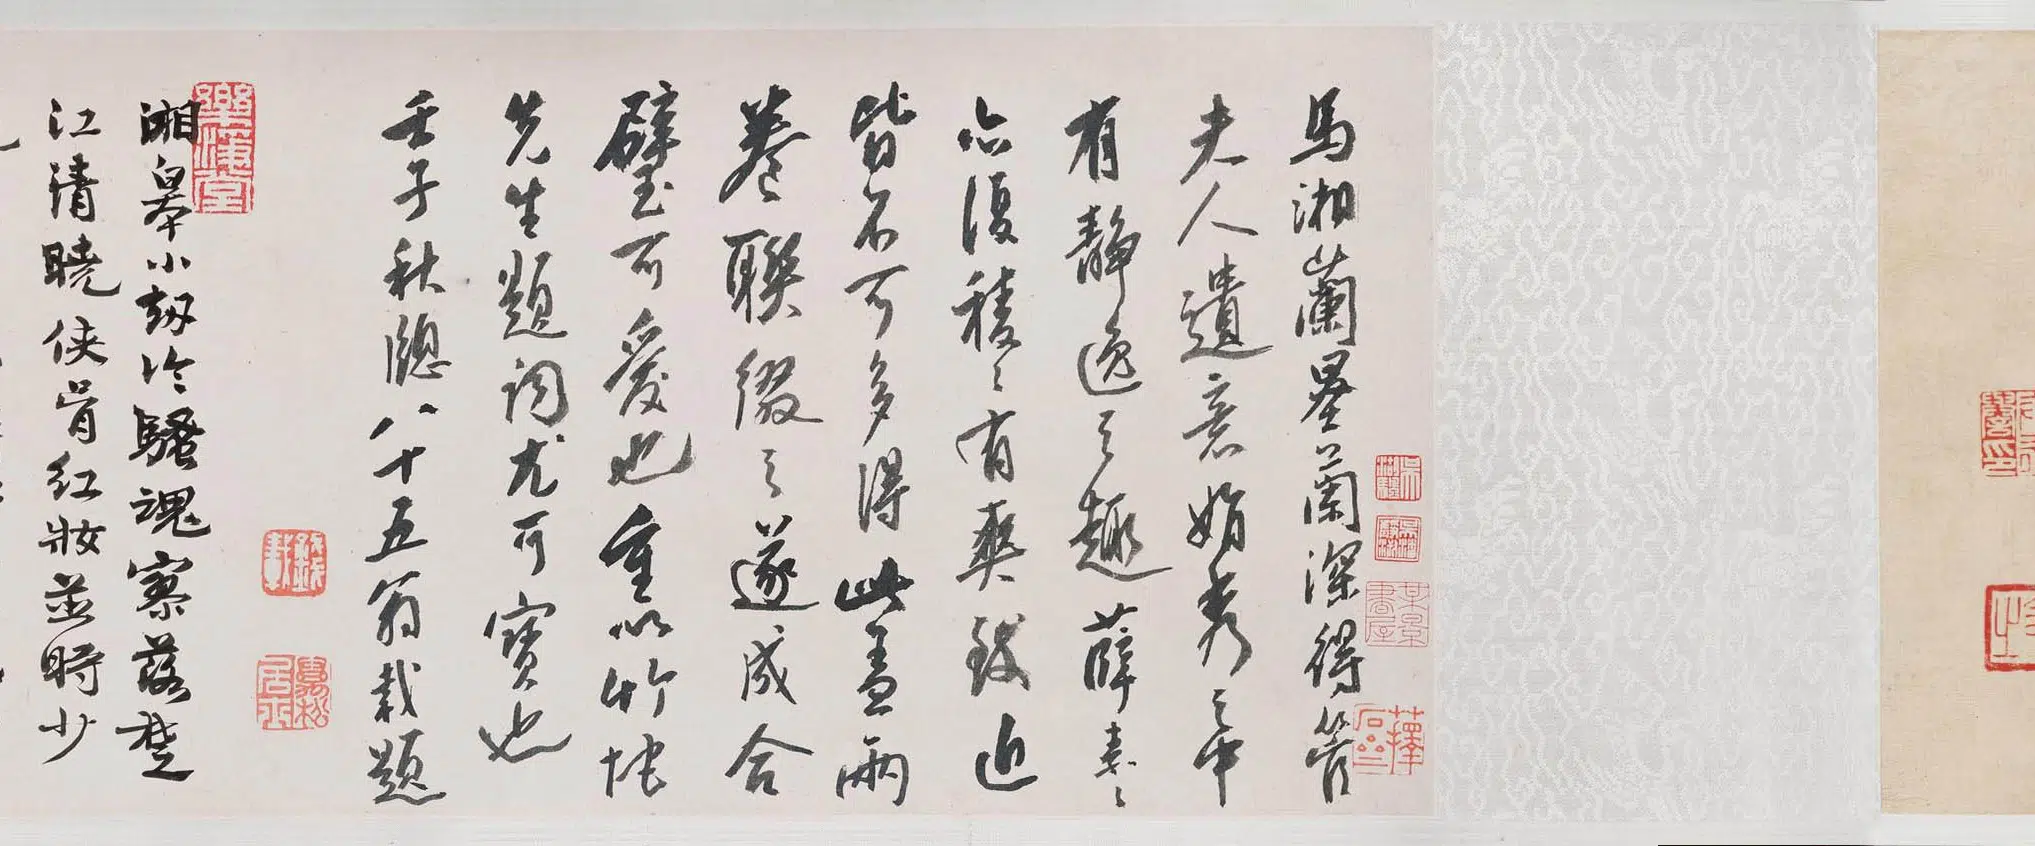 馬湘蘭墨蘭深得管
夫人遺意娟秀之中
有靜逸之趣薛素々
亦復稜々有爽致近
皆不可多得此蓋兩
卷聯綴之遂成合
璧可愛也重以竹垞
先生題詞尤可寶也
壬子秋牕八十五翁載題
湘皋小劫冷騷魂寥落楚
江清曉俠骨紅妝並時少